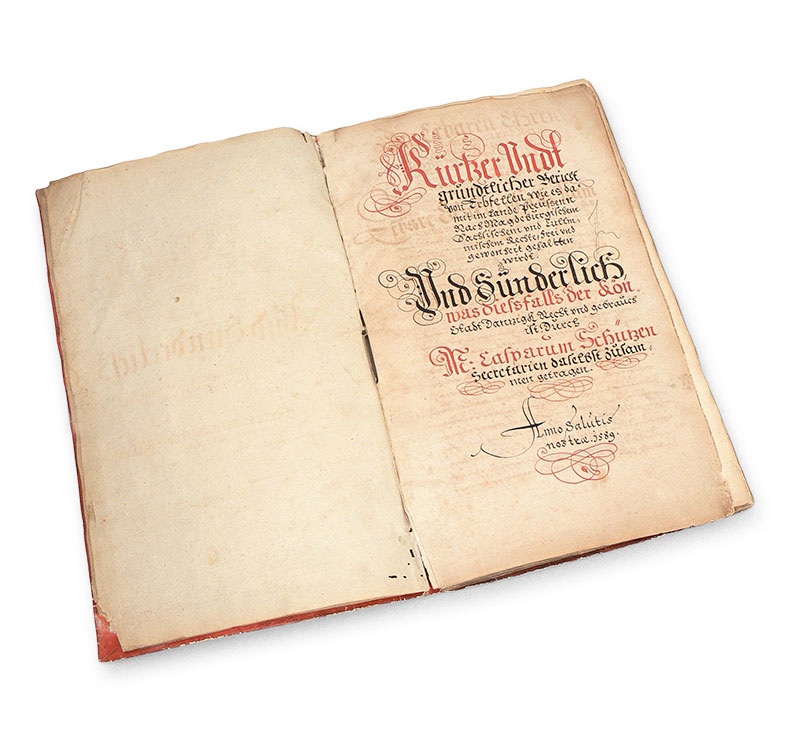 Kürtzer Vndt
gründtlicher Bericht
von Erbfellen Wie es da
mit im Lande Preüssenn
Nach Magdebürgischem
Sächsischem vnd Cüllm
mischem Rechte, frei vnd
gewonheit gehaltten
wirdt
Vnd Sünderlich
was diessfalls der Kön.
Stadt Danzigk Recht vnd gebraüch
ist Dürch
M: Casparum Schützen
Secretarien daselbst züsam
men getragen.
Anno Salutis
nostræ. 1589.